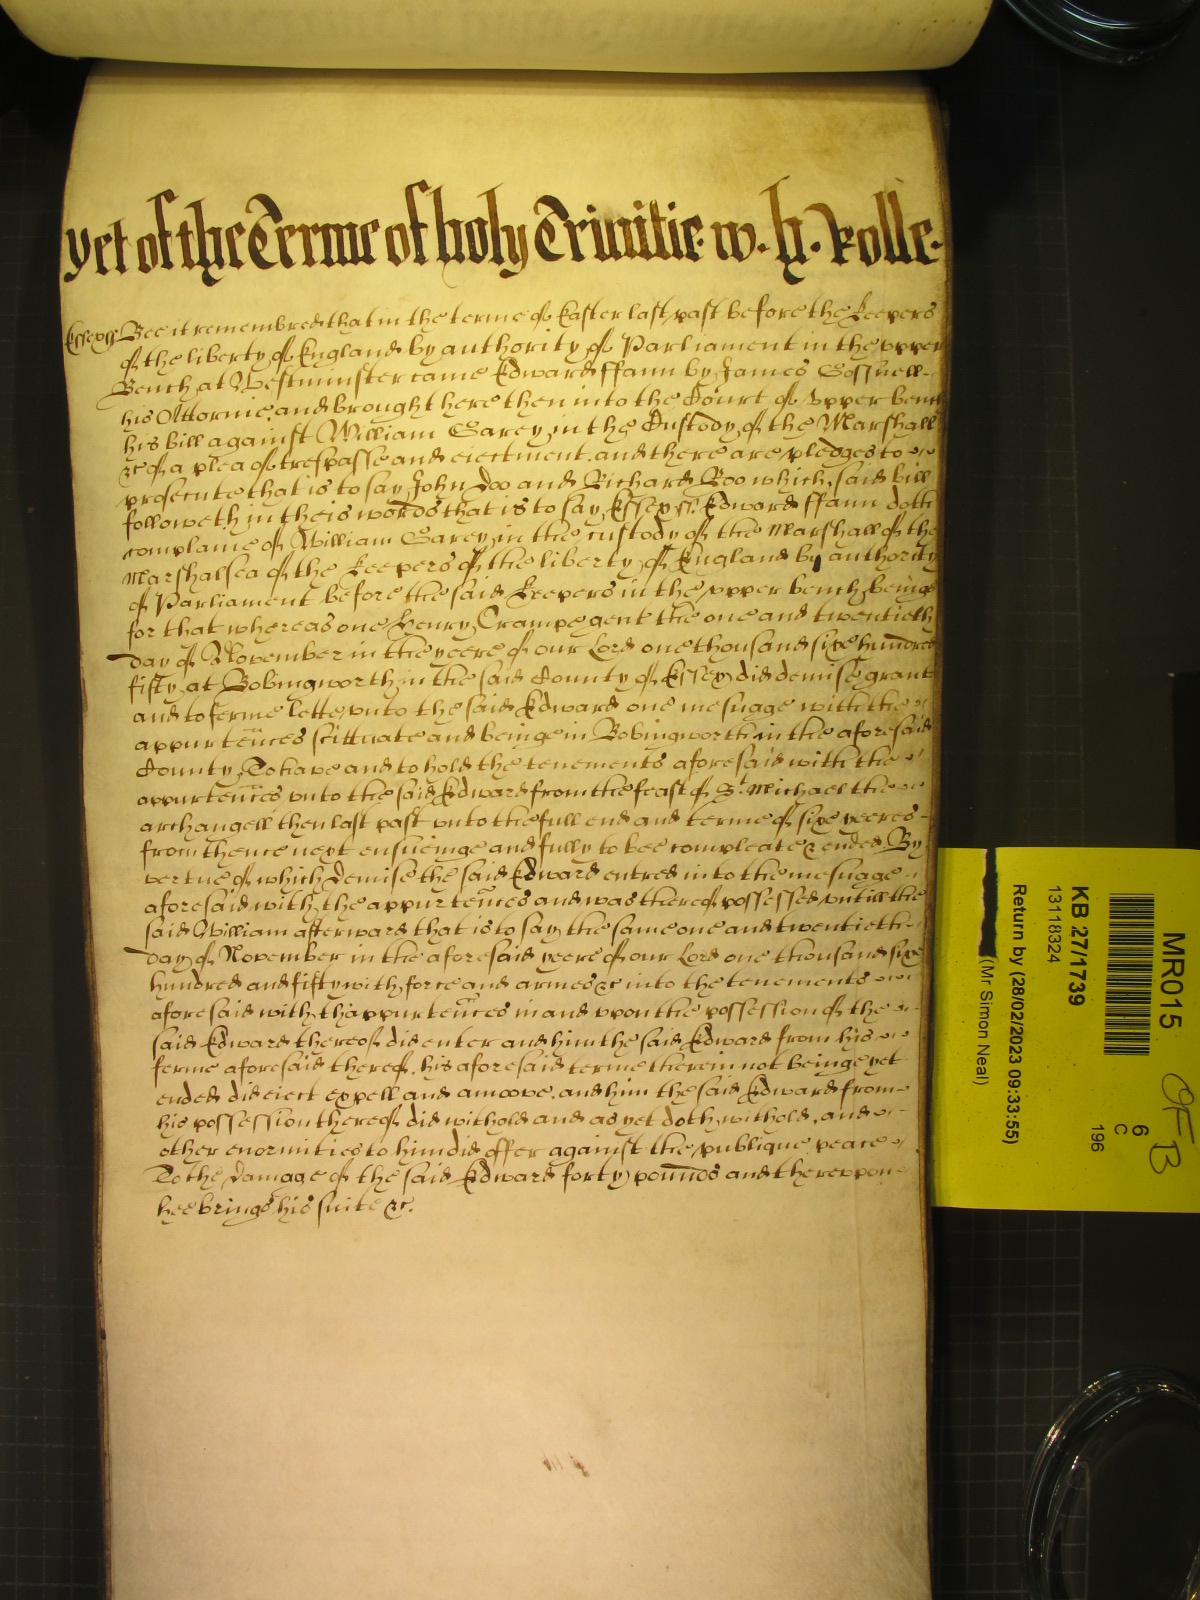 Yet of the Terme of holy Trinitie. W. H. Rolle.
Essex ss Bee it remembred that in the terme of Easter last past before the Keepers
of the liberty of England by authority of Parliament in the upper
Bench at Westminster came Edward ffann by James Gosnell
his Attornie and brought here then into the Court of upper bench
his bill against William Carey in the Custody of the Marshall
&c of a plea of trespasse and eiectment. and there are pledges to
prosecute that is to say John Doo and Richard Roo which said bill
followeth in theis words that is to say Essex ss. Edward ffann doth
complaine of William Carey in the custody of the Marshall of the
Marshalsea of the Keepers of the liberty of England by authority
of Parliament before the said Keepers in the upper bench beinge
for that whereas one Henry Crampe gent the one and twentieth
day of November in the yeere of our Lord one thousand sixe hundred
fifty at Bobingworth in the said County of Essex did demise grant
and to ferme lette unto the said Edward one mesuage with the
appurtenñces scittuate and beinge in Bobingworth in the aforesaid
County To have and to hold the tenements aforesaid with the
appurtenñces unto the said Edward from the feast of St Michael the
archangell then last past unto the full end and terme of sixe yeeres
from thence next ensueinge and fully to bee compleate & ended. By
vertue of which Demise the said Edward entred into the mesuage
aforesaid with the appurtenñces and was thereof possessed untill the
said William afterward that is to say the same one and twentieth
day of November in the aforesaid yeere of our Lord one thousand sixe
hundred and fifty with force and armes &c into the tenements
aforesaid with thappurtenñces in and upon the possession of the
said Edward thereof did enter and him the said Edward from his
ferme aforesaid thereof. his aforesaid terme therein not beinge yet
ended did eiect expell and amoove. and him the said Edward from
his possession thereof did withold and as yet doth withold. and
other enormities to him did offer against the publique peace
To the damage of the said Edward forty pounds and thereupon
hee brings his suite &c.
MR015
KB 27/1739
13118324
Return by (28/02/2023 09:33:55)
(Mr Simon Neal)
6
C
196